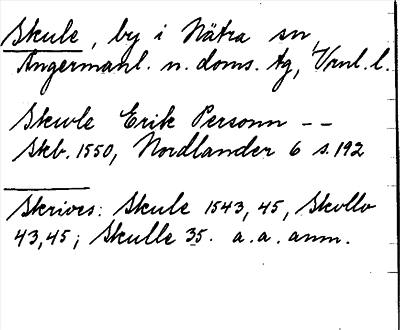 Skule, by i Nätra sn,
Ångermanl. n. doms. tg, Vrnl. l.
Skwle Erik Personn --
Skb. 1550, Nordlander 6 s. 192
Skrives: Skule 1543, 45, Skollo
43, 45; Skulle 35. a. a. anm.